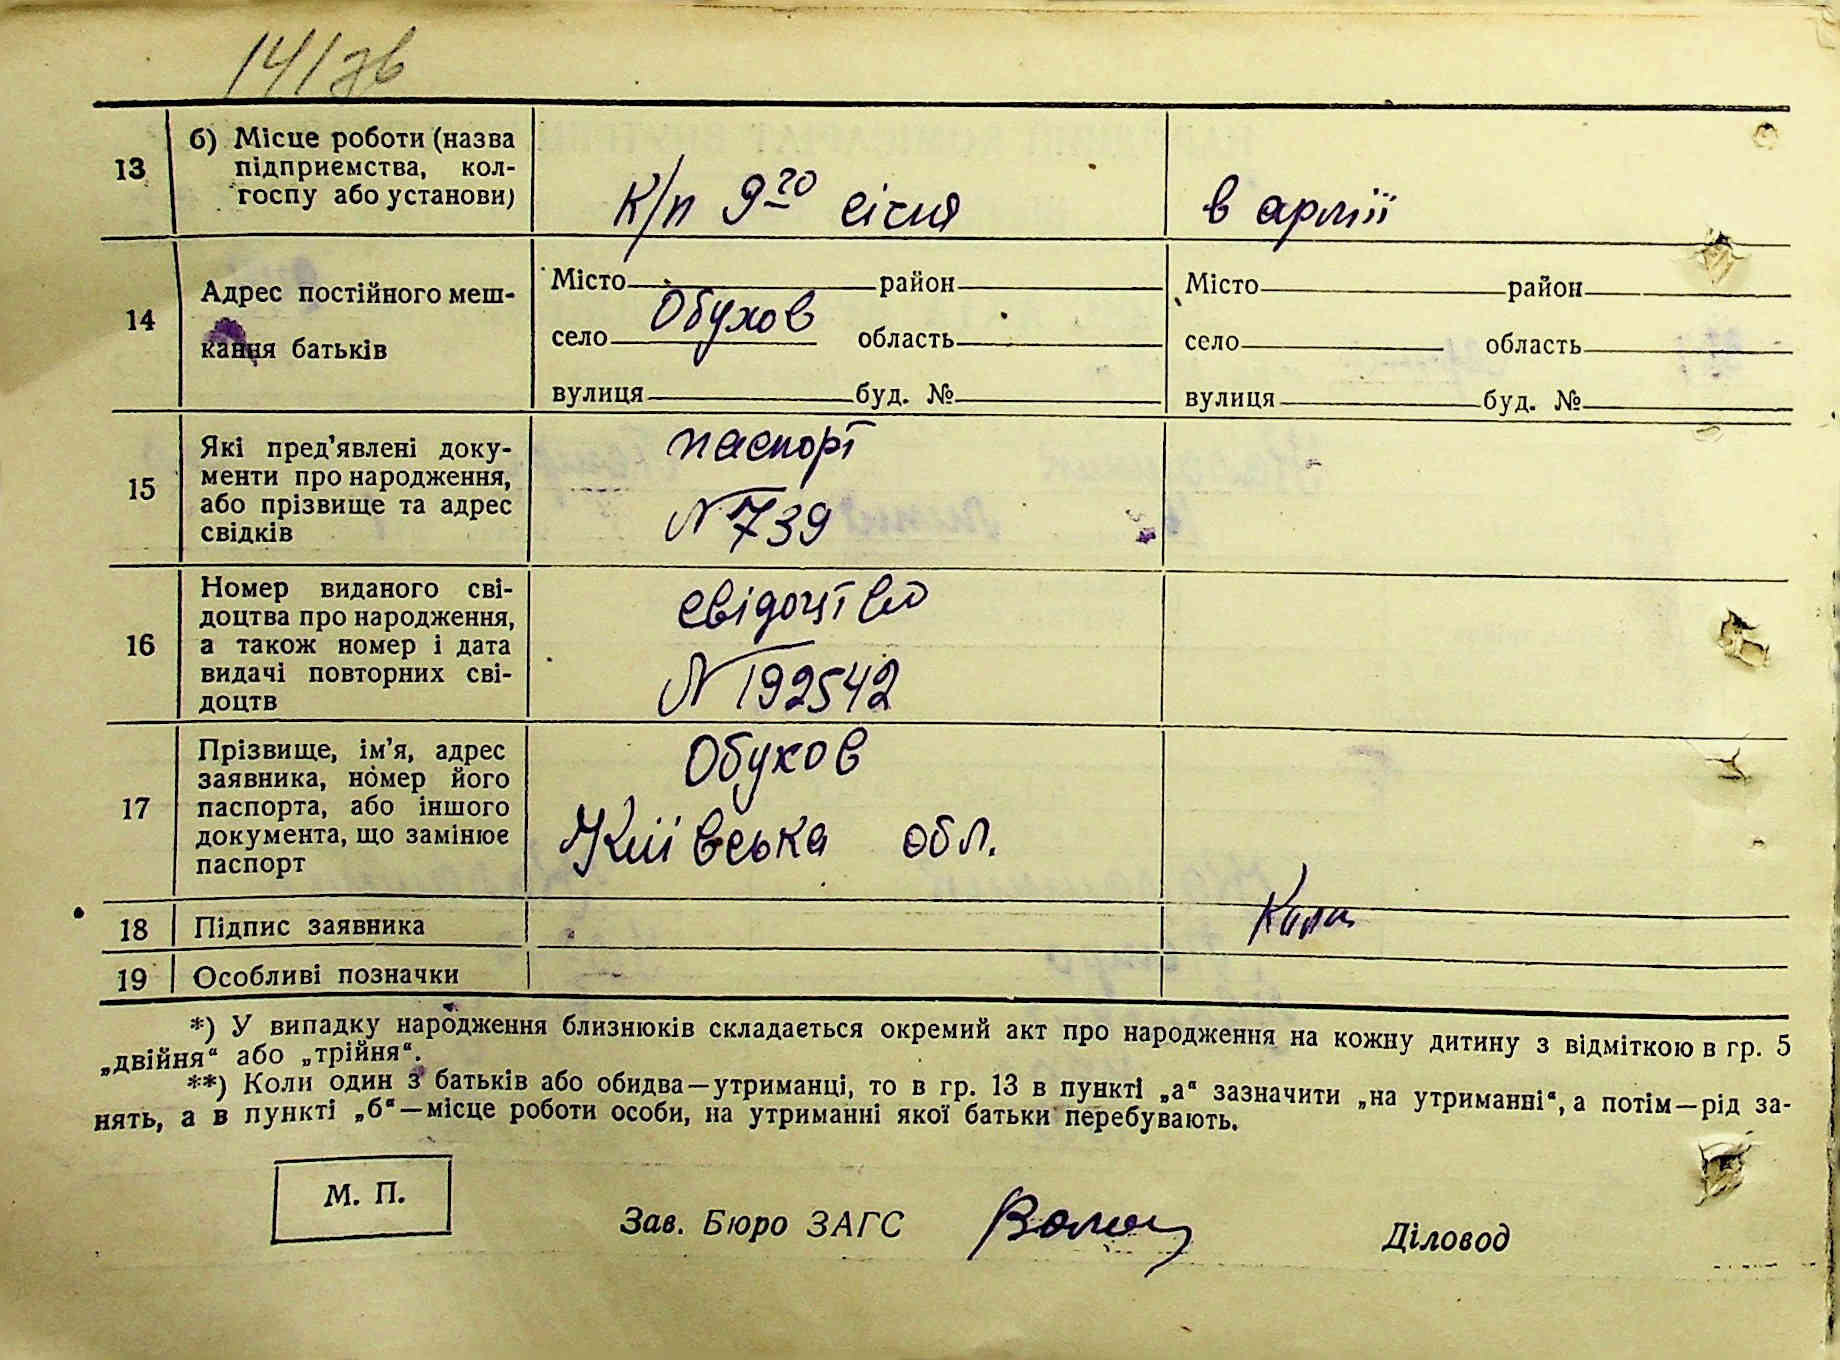 141 зв
13
б) Місце роботи (назва
підприємства, кол-
госпу або установи)
К/п 9го січня
в армії
14
Адрес постійного меш-
кання батьків
Місто район
село Обухов область
вулиця буд. №
Місто район
село область
вулиця буд. №
15
Які пред'явлені доку-
менти про народження,
або прізвище та адрес
свідків
паспорт
N 739
16
Номер виданого сві-
доцтва про народження,
а також номер і дата
видачі повторних сві-
доцтв
свідоцтво
N 192542
17
Прізвище, ім'я, адрес
заявника, номер його
паспорта, або іншого
документа, що замінює
паспорт
Обухов
Київська обл.
18 Підпис заявника
19 Особливі позначки
*) У випадку народження близнюків складається окремий акт про народження на кожну дитину з відміткою в гр. 5
„двійня“ або „трійня“.
**) Коли один з батьків або обидва—утриманці, то в гр. 13 в пункті „а“ зазначити „на утриманні“, а потім—рід за-
нять, а в пункті „б“—місце роботи особи, на утриманні якої батьки перебувають.
М. П.
Зав. Бюро ЗАГС
Діловод